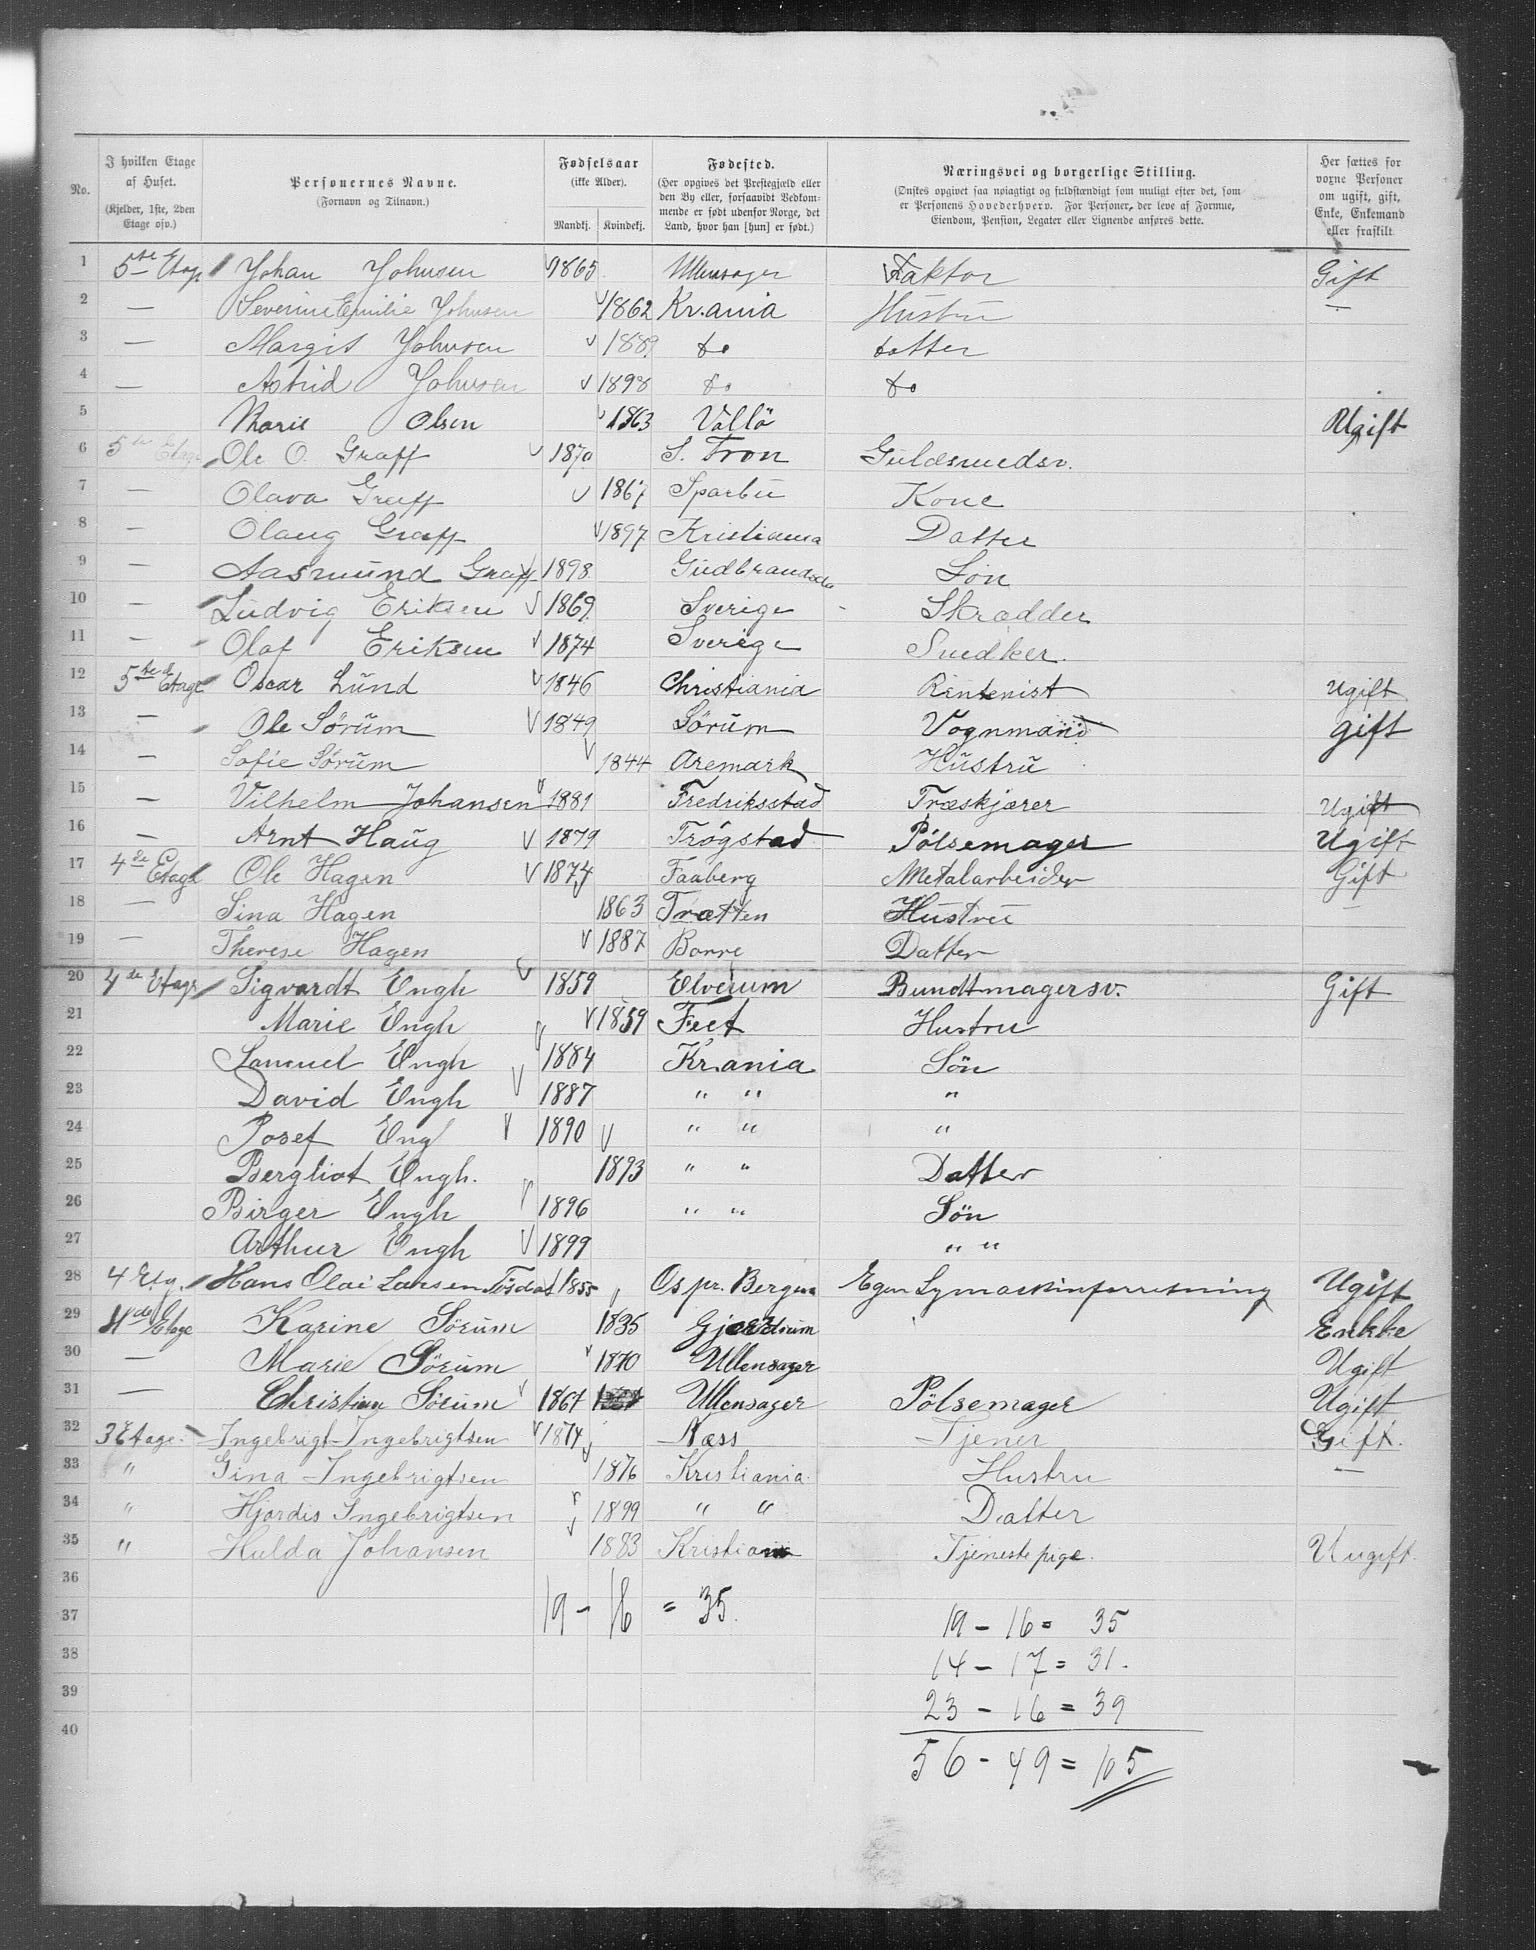 No. | I hvilken Etage af Huset. (Kjelder, 1ste, 2den Etage osv.) | Personernes Navne. (Fornavn og Tilnavn.) | Fødselsaar (ikke Alder). Mandkj. Kvindekj. | Fødested. (Her opgives det Prestegjæld eller den By eller, forsaavidt Vedkommende er født udenfor Norge, det Land, hvor han [hun] er født.) | Næringsvei og borgerlige Stilling. (Ønskes opgivet saa nøiagtigt og fuldstændigt som muligt efter det, som er Personens Hovederhverv. For Personer, der leve af Formue, Eiendom, Pension, Legater eller Lignende anføres dette. | Her sættes for voxne Personer om ugift, gift, Enke, Enkemand eller fraskilt
1 5te Etage Johan Johnsen 1865 Ullensager Faktor Gift
2 — Severine Emilie Johnsen 1862 Kr.ania Hustru —
3 — Margit Johnsen 1889 do datter
4 — Astrid Johnsen 1898 do do
5 Marie Olsen 1863 Vallö Ugift
6 5te Etage Ole O. Graff 1870 S. Fron Guldsmedsv.
7 — Olava Graff 1867 Sparbu Kone
8 — Olaug Graff 1897 Kristiania Datter
9 — Aasmund Graff 1898 Gudbrandsda Søn
10 — Ludvig Eriksen 1869 Sverige - Skrædder
11 — Olaf Eriksen 1874 Sverige Snedker.
12 5te Etage Oscar Lund 1846 Christiania Rentenist Ugift
13 — Ole Sörum 1849 Sörum Vognmand gift
14 — Sofie Sörum 1844 Aremark Hustru
15 — Vilhelm Johansen 1881 Fredriksstad Træskjærer Ugift
16 — Arnt Haug 1879 Trögstad Pölsemager Ugift
17 4de Etage Ole Hagen 1874 Faaberg Metalarbeider Gift
18 — Sina Hagen 1863 Trætten Hustru —
19 — Therese Hagen 1887 Borre Datter
20 4de Etage Sigvardt Engh 1859 Elverum Bundtmagersv. Gift
21 Marie Engh 1859 Feet Hustru
22 Samuel Engh 1884 Kr.ania Sön
23 David Engh 1887 " " "
24 Josef Eng 1890 " " "
25 Bergliot Engh. 1893 " " Datter
26 Birger Engh 1896 " " Sön
27 Arthur Engh 1899 " "
28 4 Etg. Hans Olai Larsen 1855 Os pr. Bergen Egen Symaskinforretning Ugift
29 4de Etage Karine Sörum 1835 Gjerdrum Enkke
30 — Marie Sörum 1870 Ullensager Ugift
31 — Christian Sörum 1867 Ullensager Pölsemager Ugift
32 3 Etage. Ingebrigt Ingebrigtsen 1874 Næss Tjener Gift.
33 " Gina Ingebrigtsen 1876 Kristiania Hustru —
34 " Hjördis Ingebrigtsen 1899 " " Datter
35 " Hulda Johansen 1883 Tjenestepige. Uugift.
36
37 19 - 16 = 35. 19 - 16 = 35
38 14 - 17 = 31.
39 23 - 16 = 39
40 56 - 49 = 105